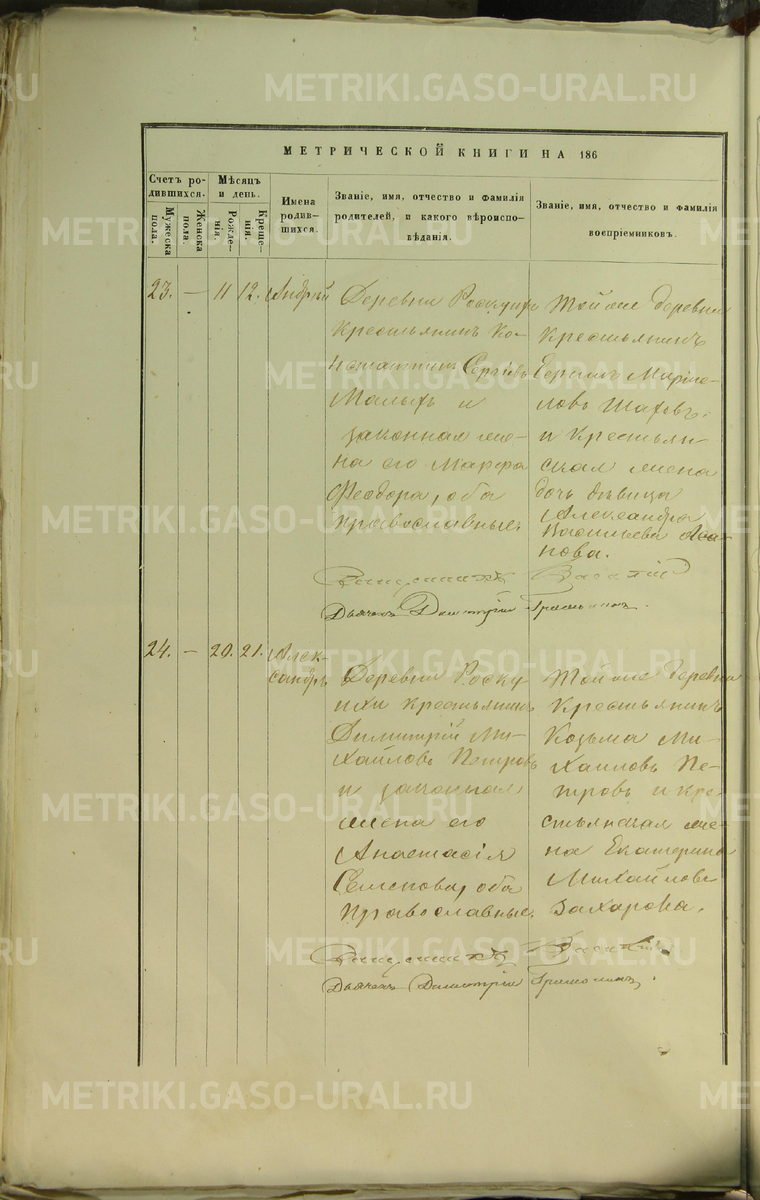 МЕТРИЧЕСКОЙ КНИГИ НА 186
Счетъ ро-
дившихся.
Мужеска
пола.
Женска
пола.
Мѣсяцъ
и день.
Рожде-
нія.
Креще-
нія.
Имена
родив-
шихся.
Званіе, имя, отчество и фамилія
родителей, и какого вѣроиспо-
вѣданія.
Званіе, имя, отчество и фамилія
воспріемниковъ.
23. — 11 12. Андрей
Деревни
крестьянинъ Ко-
нстантинъ Сергѣевъ
Малыхъ и
законная же-
на его Марфа
Феодора, оба
православные.
Тойже деревни
крестьянинъ
и крестьян-
ская жена
дочь дѣвица
Александра
Васильева
Василій
Дьячекъ Димитрій
24. — 20. 21. Алек-
сандръ
Деревни Роску
ихи крестьянинъ
Димитрій Ми-
хайловъ Петровъ
и законная
жена его
Анастасія
Семенова, оба
православные.
Тойже деревни
крестьянинъ
Козьма Ми-
хаиловъ Пе-
тровъ и кре-
стьянская же-
на Екатерина
Михайлова
Захарова.
Василій
Дьячекъ Димитрій
METRIKI.GASO-URAL.RU